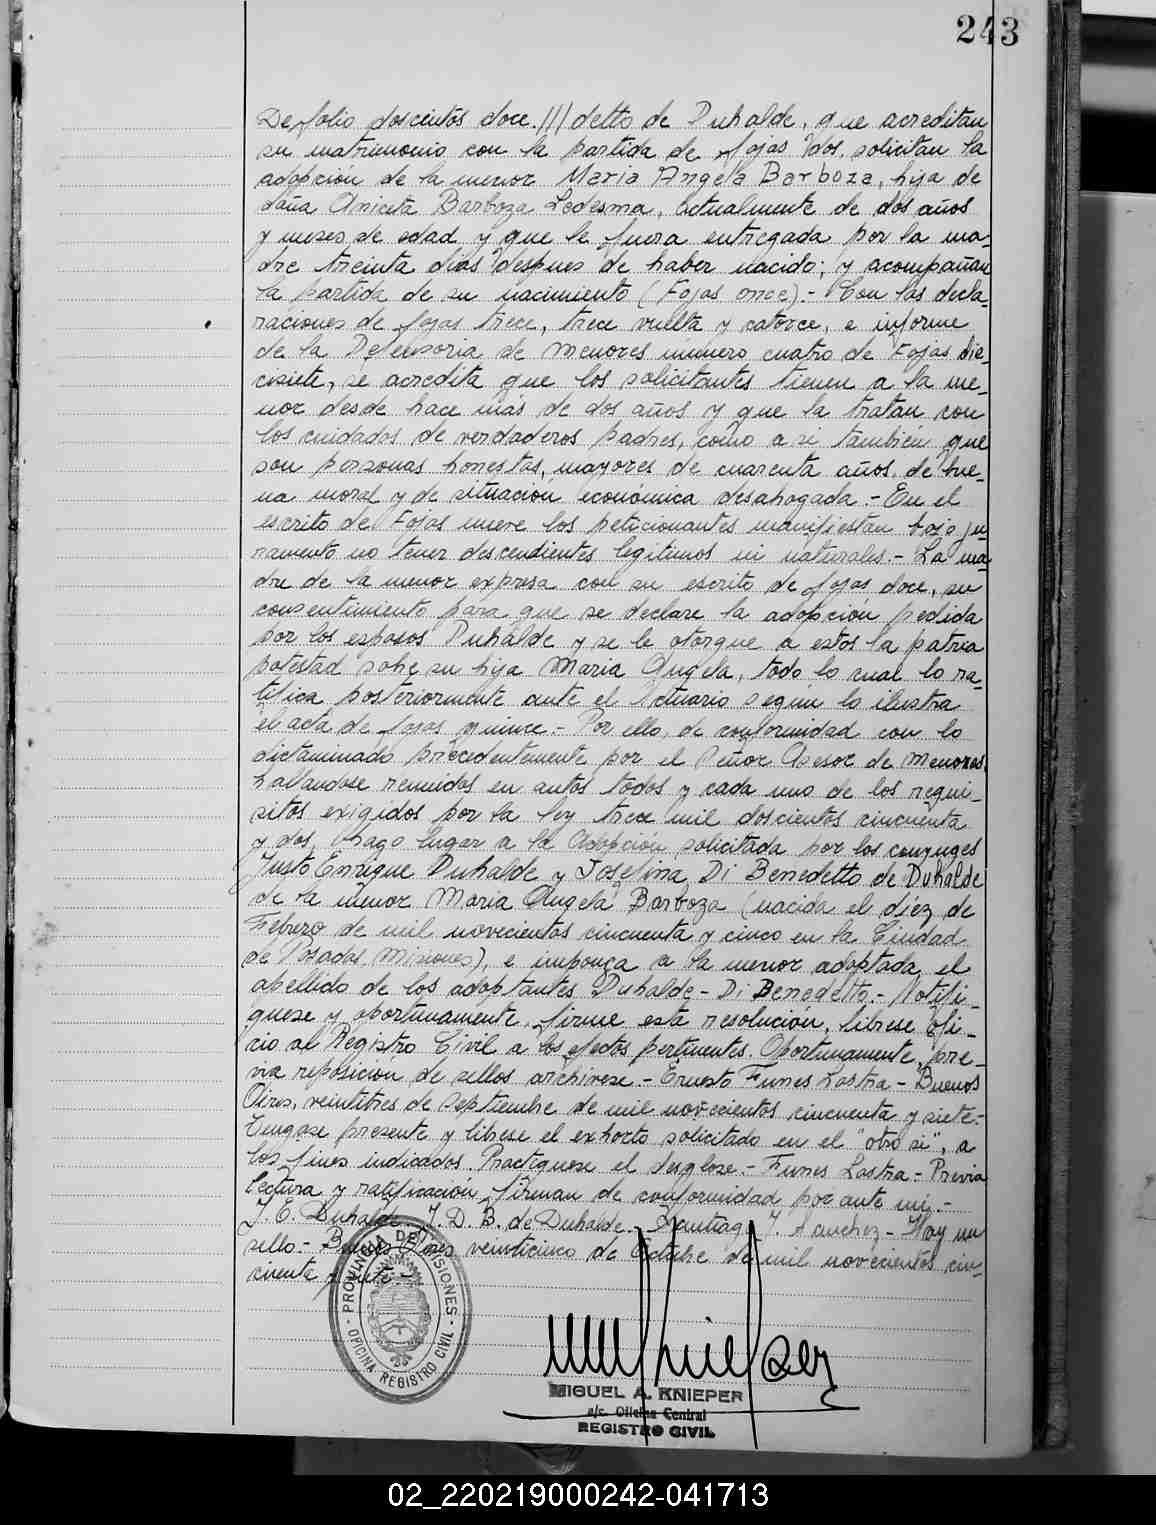 243
De folio doscientos doce. ///detto de Duhalde, que acreditan
su matrimonio con la partida de fojas dos, solicitan la
adopcion de la menor Maria Angela Barboza, hija de
doña Anicita Barboza Ledesma, actualmente de dos años
y meses de edad y que le fuera entregada por la ma-
dre treinta dias despues de haber nacido; y acompañan
la partida de su nacimiento (Fojas once).- Con las decla-
raciones de fojas trece, trece vuelta y catorce, e informe
de la Defensoria de Menores número cuatro de Fojas die-
cisiete, se acredita que los solicitantes tienen a la me-
nor desde hace más de dos años y que la tratan con
los cuidados de verdaderos padres, como a si también que
son personas honestas, mayores de cuarenta años, de bue-
na moral y de situación económica desahogada.- En el
escrito de Fojas nueve los peticionantes manifiestan bajo ju-
ramento no tener descendientes legitimos ni naturales.- La ma-
dre de la menor expresa con su escrito de fojas doce, su
consentimiento para que se declare la adopcion pedida
por los esposos Duhalde y se le otorgue a estos la patria
potestad sobre su hija Maria Angela, todo lo cual lo ra-
tifica posteriormente ante el Actuario segun lo ilustra
el acta de fojas quince.- Por ello, de conformidad con lo
dictaminado precedentemente por el Señor Asesor de Menores,
hallandose reunidos en autos todos y cada uno de los requi-
sitos exigidos por la ley trece mil doscientos cincuenta
y dos, hago lugar a la Adopción solicitada por los conyuges
Justo Enrique Duhalde y Josefina Di Benedetto de Duhalde
de la menor Maria Angela Barboza (nacida el diez de
Febrero de mil novecientos cincuenta y cinco en la Ciudad
de Posadas, Misiones), e imponga a la menor adoptada, el
apellido de los adoptantes Duhalde - Di Benedetto.- Notifi-
quese y oportunamente, firme esta resolución, librese ofi-
cio al Registro Civil a los efectos pertinentes. Oportunamente, pre-
via reposicion de sellos archivese.- Ernesto Funes Lastra - Buenos
Aires, veintitres de Septiembre de mil novecientos cincuenta y siete.-
Tengase presente y librese el exhorto solicitado en el "otro si", a
los fines indicados. Practiquese el desglose.- Funes Lastra - Previa
lectura y ratificación firman de conformidad por ante mi.-
J. E. Duhalde. J. D. B. de Duhalde. Santiago J. Sanchez - Hay un
sello.- Buenos Aires veinticinco de Octubre de mil novecientos cin-
cuenta y siete.-
PROVINCIA DE MISIONES
OFICINA REGISTRO CIVIL
MIGUEL A. KNIEPER
a/c. Oficina Central
REGISTRO CIVIL
02_220219000242-041713